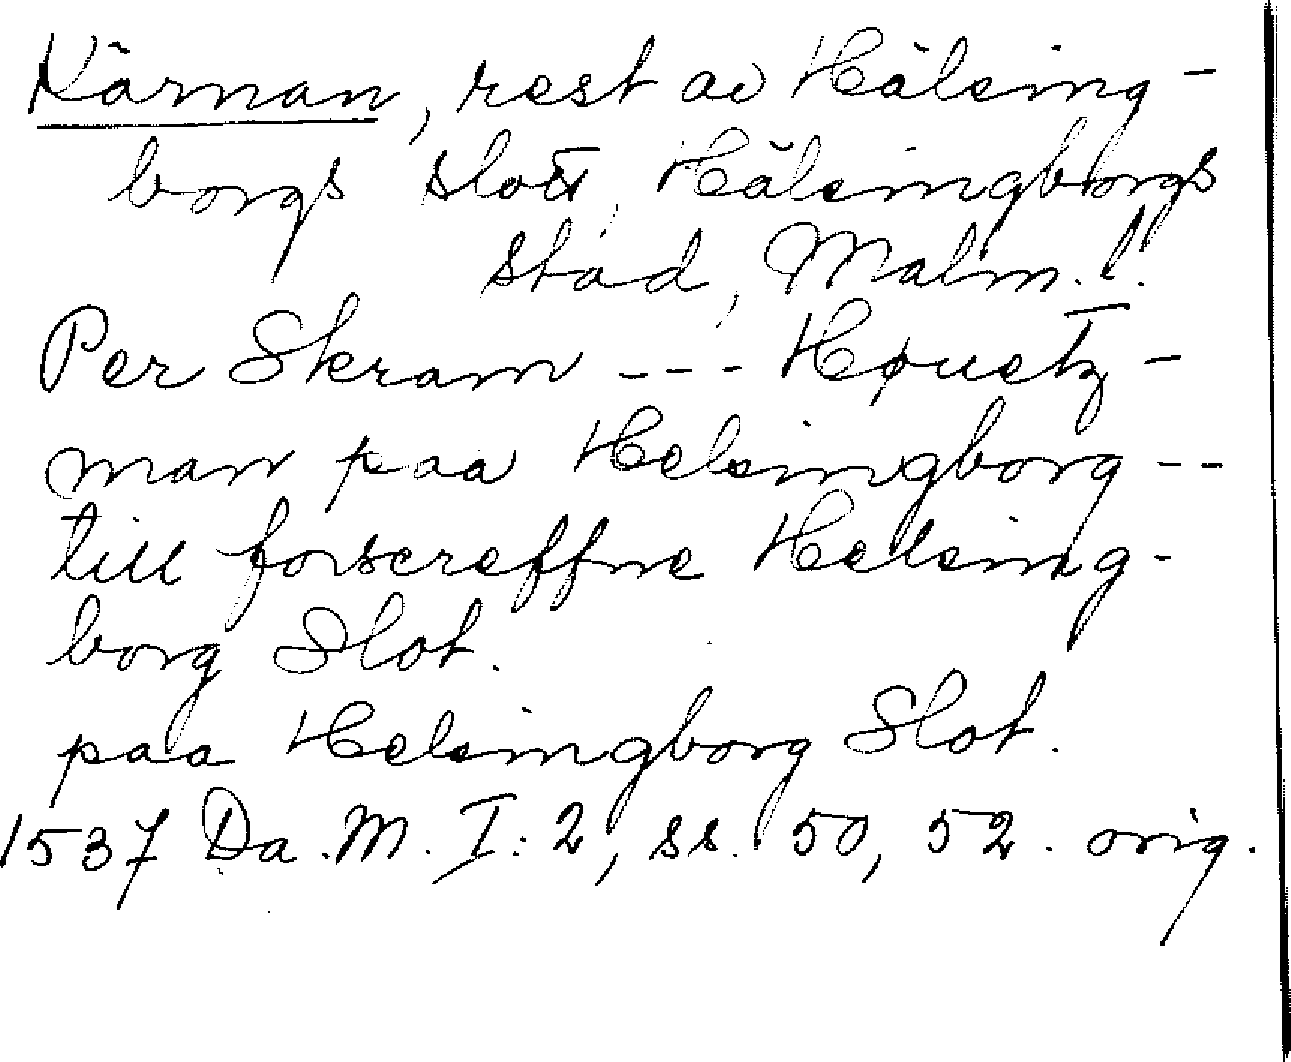 Kärnan, rest av Hälsing-
borgs slott, Hälsingborgs
stad, Malm. l.
Per Skram --- Høuetz-
man paa Helsingborg --
till forscreffne Helsing-
borg Slot.
paa Helsingborg Slot.
1537 Da. M. I: 2, ss. 50, 52. orig.